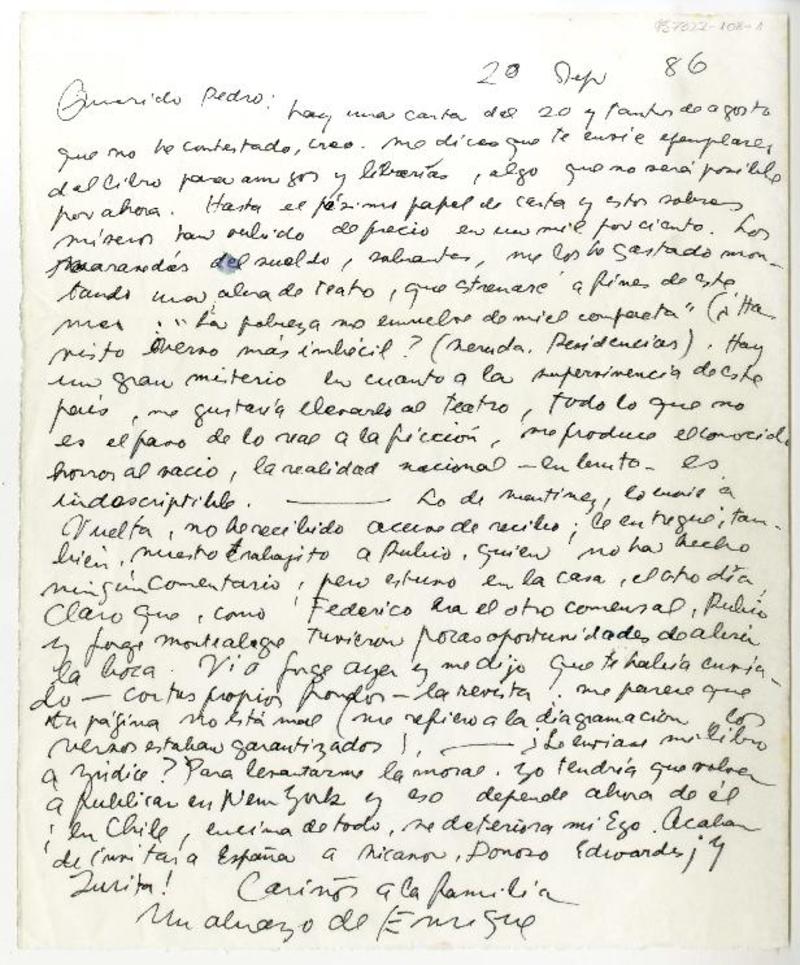 957322-108-1
20 Sep 86
Querido Pedro: hay una carta del 20 y tantos de agosto
que no he contestado, creo. Me dices que te envíe ejemplares
del libro para amigos y librerías, algo que no será posible
por ahora. Hasta el pésimo papel de carta y estos sobres
míseros han subido de precio en un mil por ciento. Los
maravedás del sueldo, sobrantes, me los he gastado mon-
tando una obra de teatro, que estrenaré a fines de este
mes: "La pobreza no envuelve de miel compacta" (¡Ha
visto verso más imbécil? (Neruda. Residencias). Hay
un gran misterio en cuanto a la supervivencia de este
país, me gustaría llevarlo al teatro, todo lo que no
es el paso de lo real a la ficción, me produce el conocido
horror al vacío, la realidad nacional - en bruto - es
indescriptible. — Lo de Martínez, lo envié a
Vuelta, no he recibido acuse de recibo; le entregué, tam-
bién, nuestro trabajito a Rubio, quien no ha hecho
ningún comentario, pero estuvo en la casa, el otro día,
Claro que, como Federico era el otro comensal, Rubio
y Jorge Montealegre tuvieron pocas oportunidades de abrir
la boca. Vi a Jorge ayer y me dijo que te había envia-
do - con sus propios fondos - la revista. Me parece que
tu página no está mal (me refiero a la diagramación, los
versos estaban garantizados), — ¡Le enviaste mi libro
a Yúdice? Para levantarme la moral. Yo tendría que volver
a publicar en New York y eso depende ahora de él
¡en Chile, encima de todo, se deteriora mi Ego. Acaban
de invitar a España a Nicanor, Donoso Edwards ¡y
Zurita! Cariños a la familia
Un abrazo de Enrique